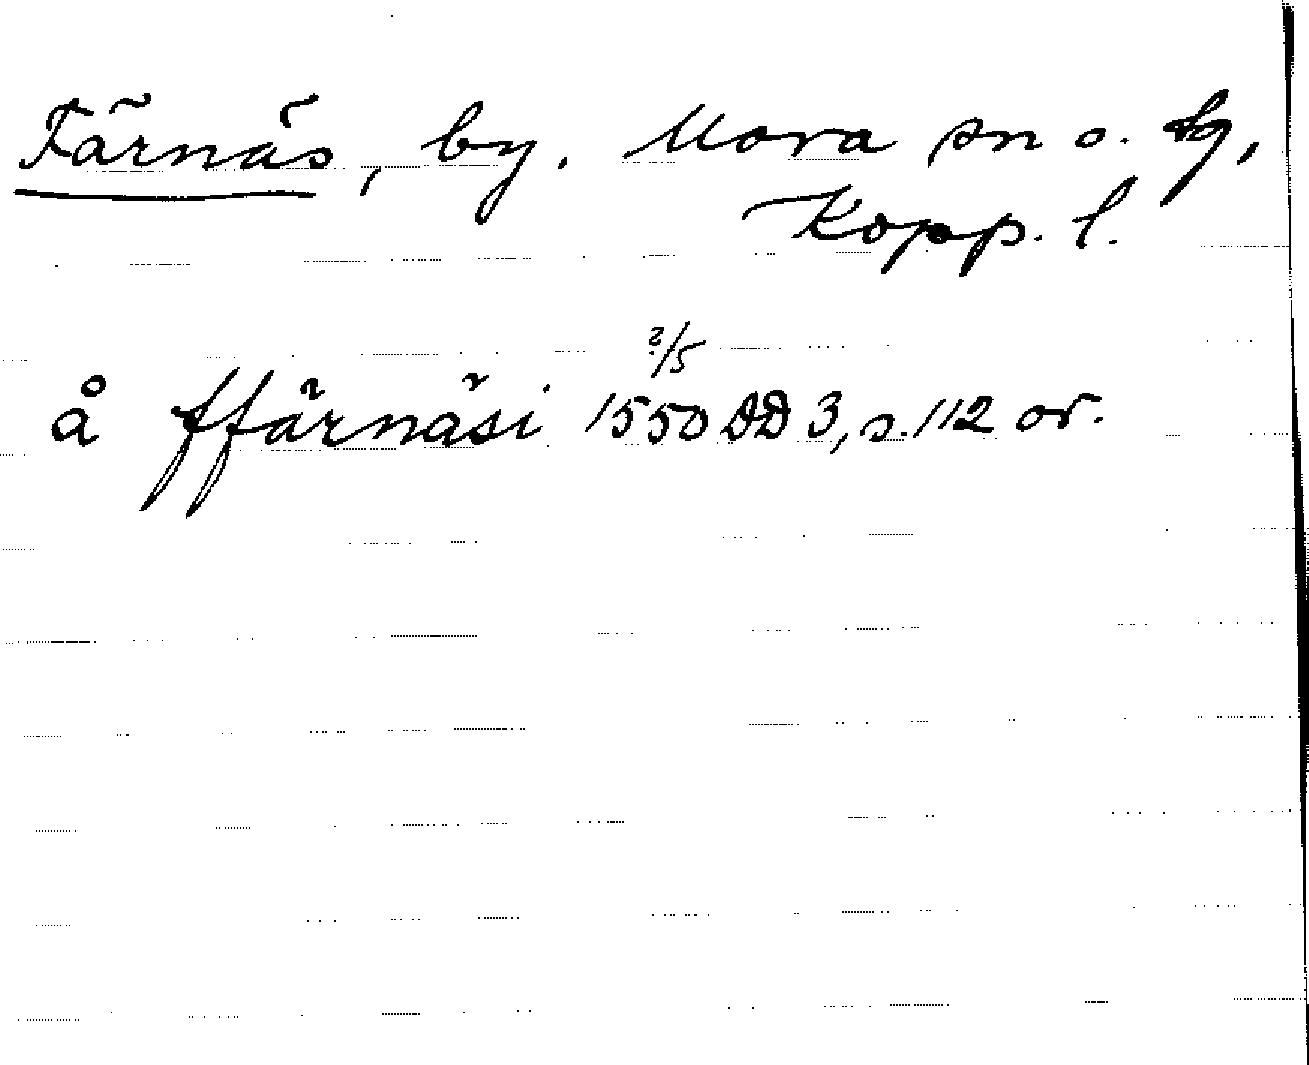 Färnäs, by. Mora sn o. tg,
Kopp. l.
å ffärnäsi 1550 ?/5 DD 3, s. 112 or.